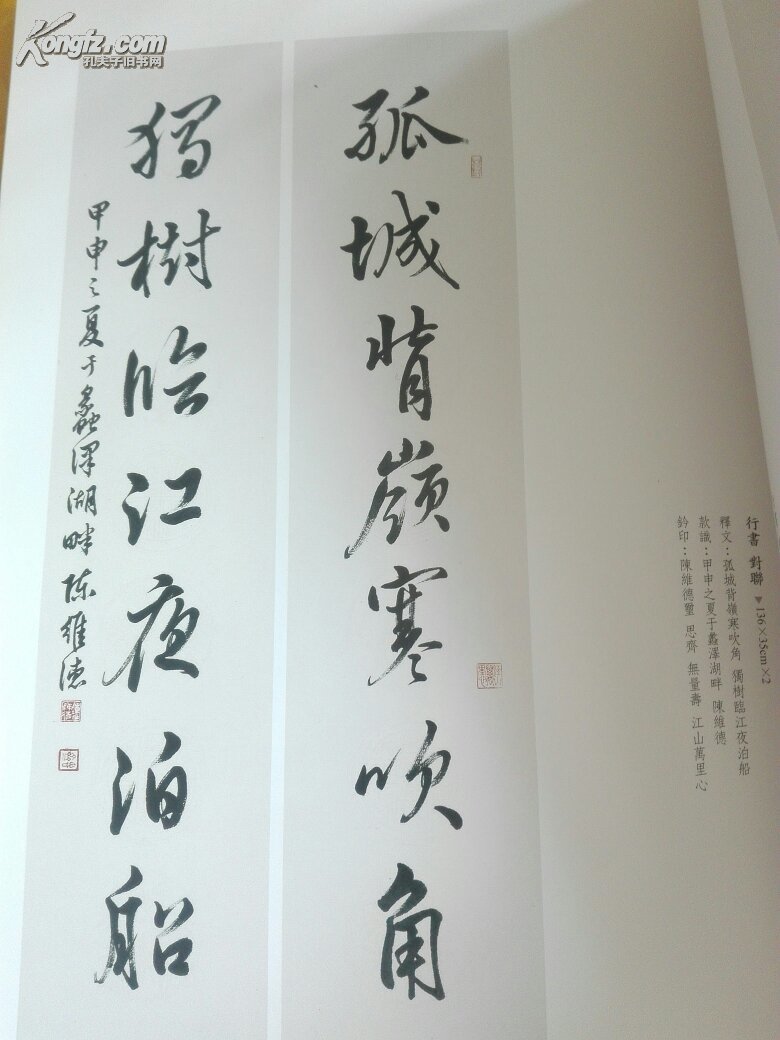 Kongfz.com
孔夫子旧书网
行書 對聯 ▼136×35cm×2
釋文：孤城背嶺寒吹角 獨樹臨江夜泊船
款識：甲申之夏于蠡澤湖畔 陳維德
鈐印：陳維德璽 思齊 無量壽 江山萬里心
孤城背嶺寒吹角
獨樹臨江夜泊船
甲申之夏于蠡澤湖畔陳維德